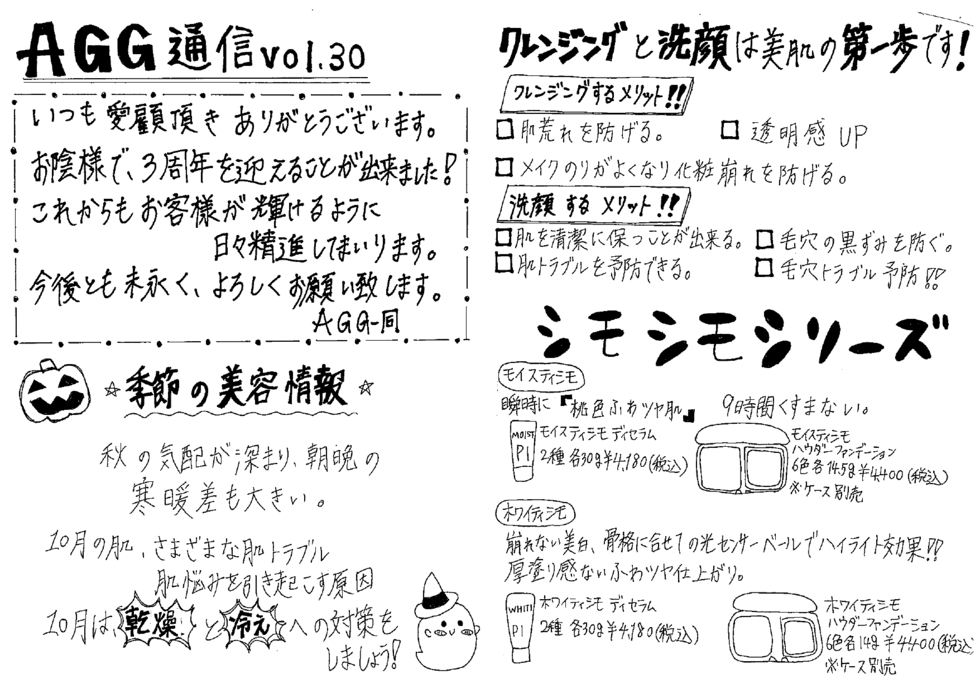 AGG通信vol.30
いつも愛顧頂きありがとうございます。
お陰様で、3周年を迎えることが出来ました！
これからもお客様が輝けるように
日々精進してまいります。
今後とも末永く、よろしくお願い致します。
AGG一同
☆季節の美容情報☆
秋の気配が深まり、朝晩の
寒暖差も大きい。
10月の肌、さまざまな肌トラブル
肌悩みを引き起こす原因
10月は、乾燥と冷えへの対策を
しましょう！
クレンジングと洗顔は美肌の第一歩です！
クレンジングするメリット！！
□肌荒れを防げる。 □透明感UP
□メイクのりがよくなり化粧崩れを防げる。
洗顔するメリット！！
□肌を清潔に保つことが出来る。 □毛穴の黒ずみを防ぐ。
□肌トラブルを予防できる。 □毛穴トラブル予防！！
シモシモシリーズ
モイスティシモ
瞬時に『桃色ふわツヤ肌』 9時間くすまない。
MOIST
PI
モイスティシモ ディセラム
2種 各30g¥4,180(税込)
モイスティシモ
パウダーファンデーション
6色各14.5g¥4,400(税込)
※ケース別売
ホワイティシモ
崩れない美白、骨格に合せての光センサーベールでハイライト効果！！
厚塗り感ないふわツヤ仕上がり。
WHITI
PI
ホワイティシモ ディセラム
2種 各30g¥4,180(税込)
ホワイティシモ
パウダーファンデーション
6色各14g¥4,400(税込)
※ケース別売